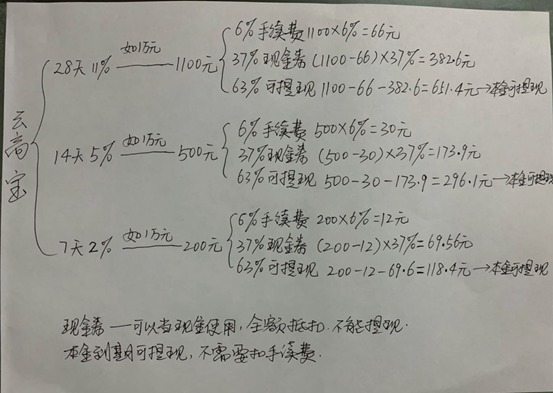 6%手续费1100×6%=66元
28天11% 如1万元 1100元 37%现金券(1100-66)×37%=382.6元
63%可提现 1100-66-382.6=651.4元→本金可提现
云高宝
6%手续费 500×6%=30元
14天5% 如1万元 500元 37%现金券 (500-30)×37%=173.9元
63%可提现 500-30-173.9=296.1元→本金可提现
6%手续费 200×6%=12元
7天2% 如1万元 200元 37%现金券 (200-12)×37%=69.56元
63%可提现 200-12-69.6=118.4元→本金可提现
现金券—可以当现金使用,全额抵扣.不能提现.
本金到期可提现,不需要扣手续费.